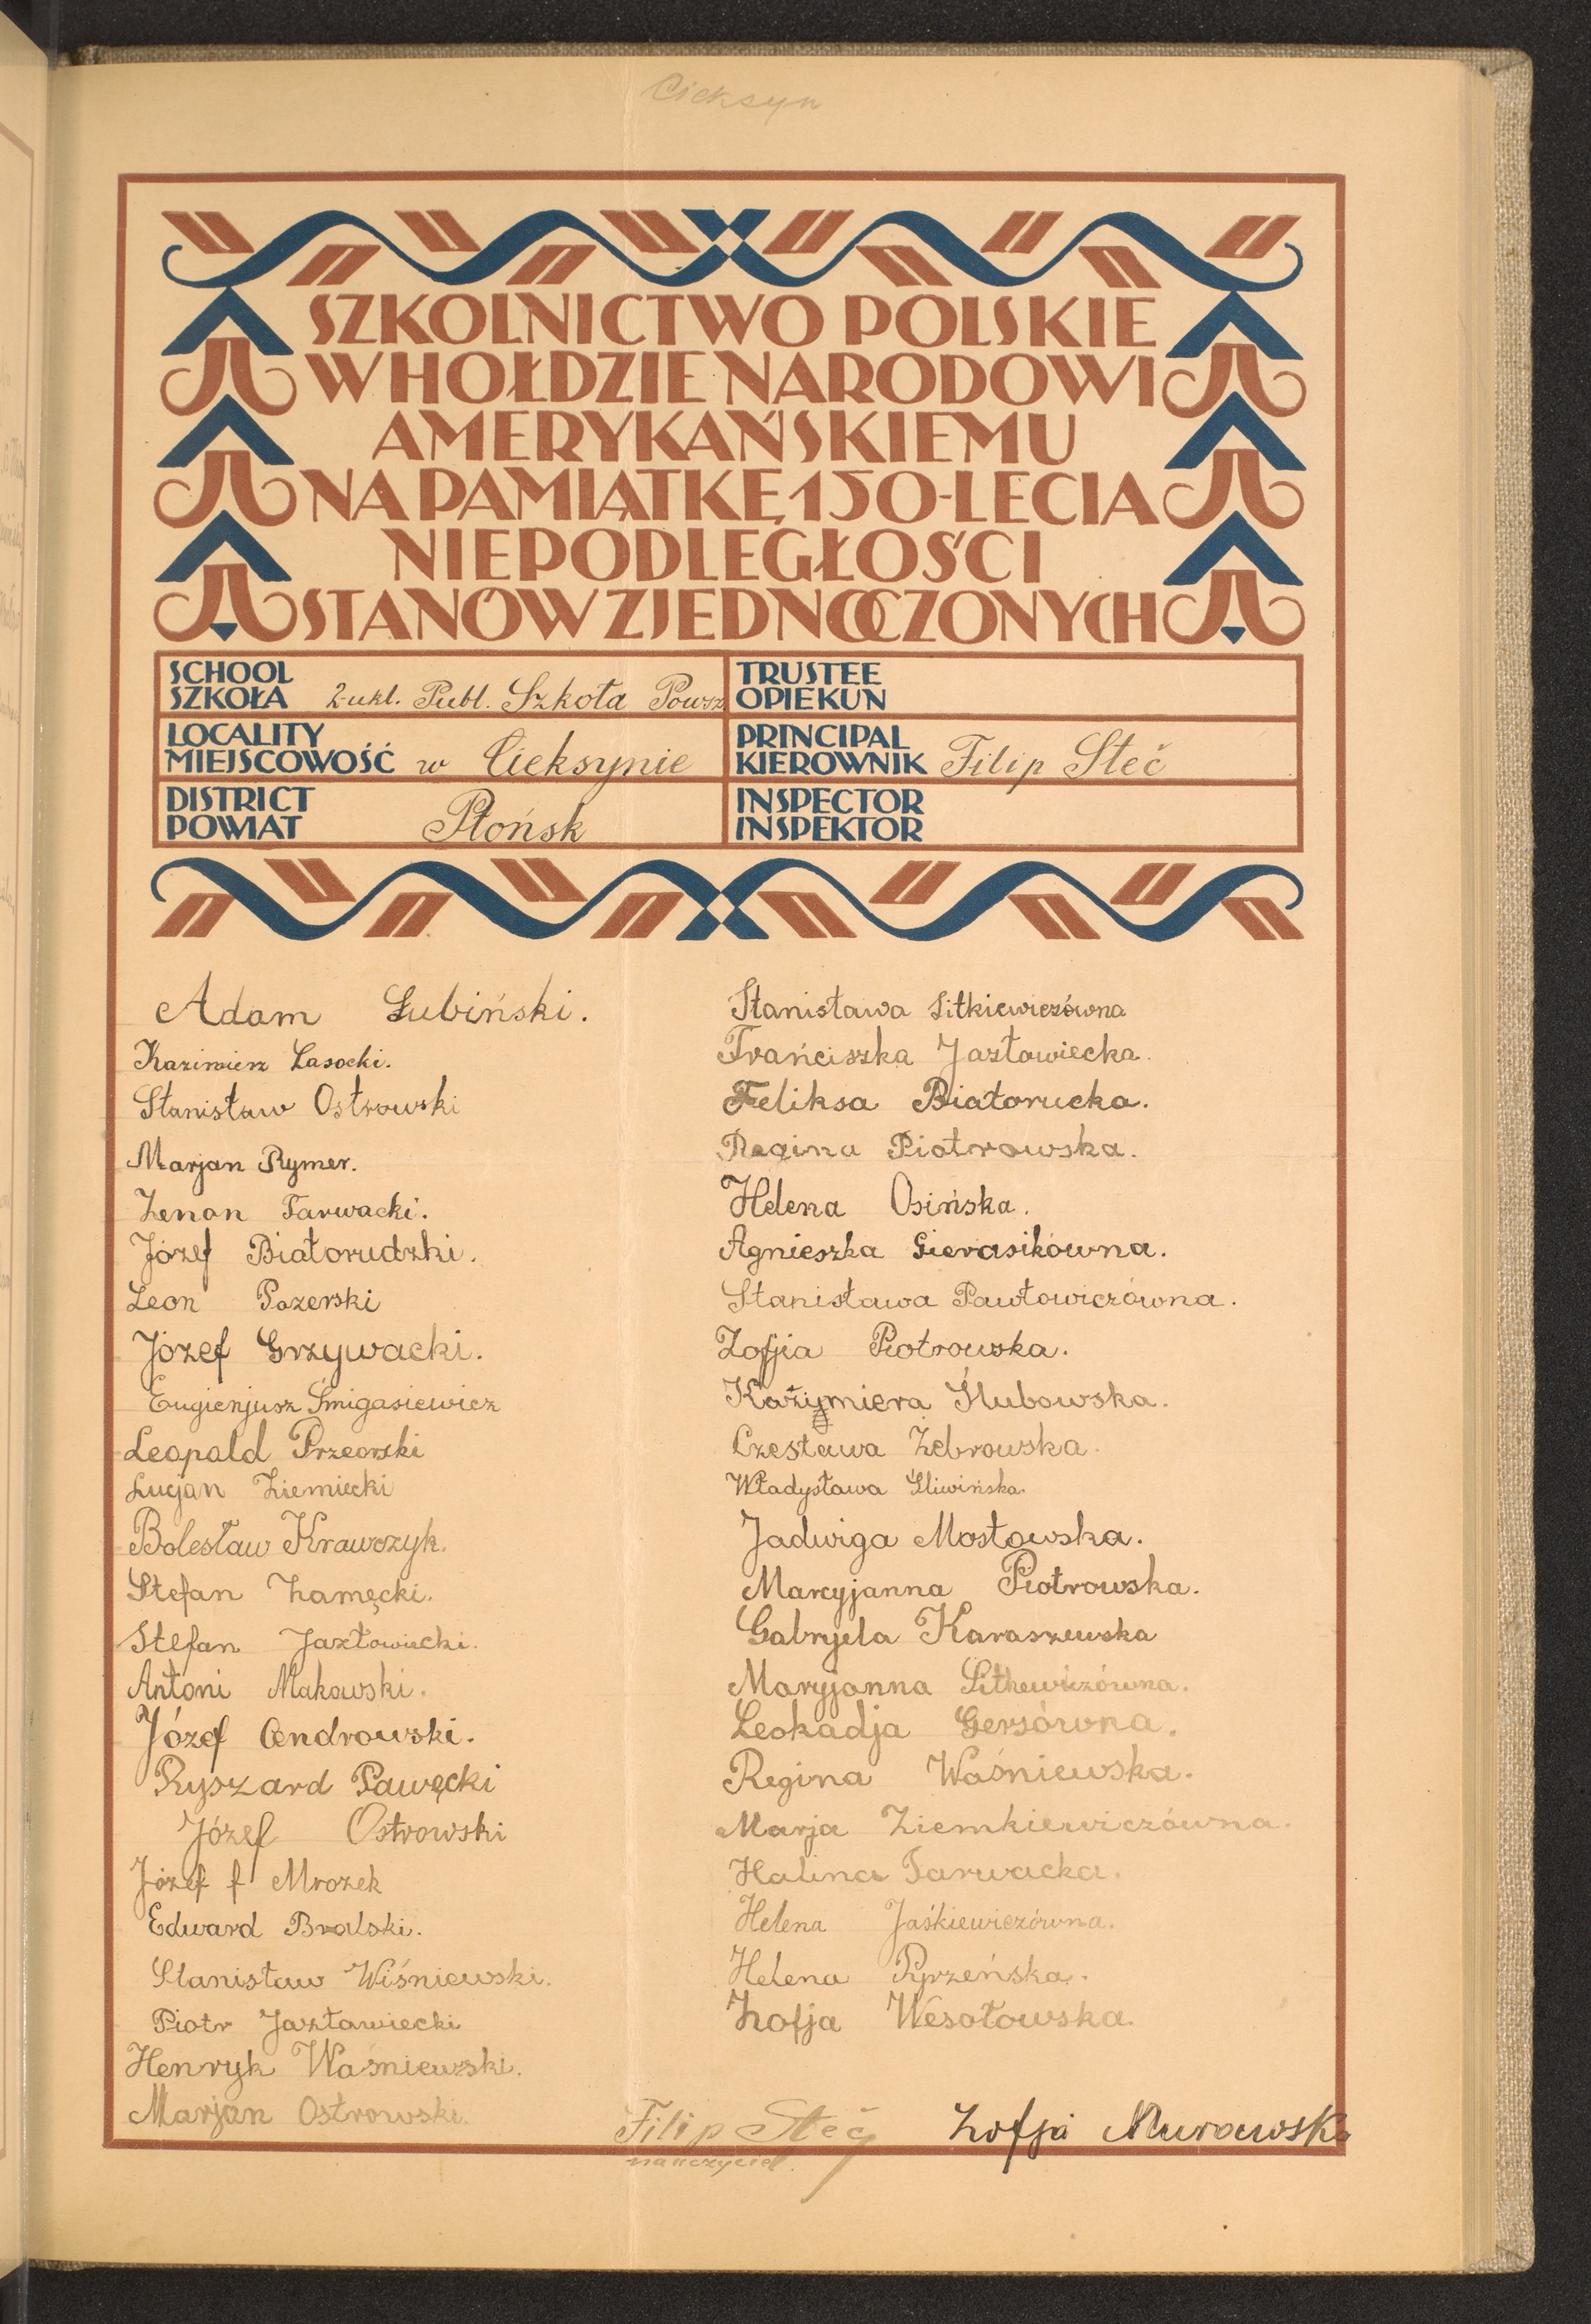 Cieksyn
SZKOLNICTWO POLSKIE
W HOŁDZIE NARODOWI
AMERYKAŃSKIEMU
NA PAMIĄTKĘ 150-LECIA
NIEPODLEGŁOŚCI
STANÓW ZJEDNOCZONYCH
SCHOOL
SZKOŁA 2-ukl. Publ. Szkoła Powsz
LOCALITY
MIEJSCOWOŚĆ w Cieksynie
DISTRICT
POWIAT Płońsk
TRUSTEE
OPIEKUN
PRINCIPAL
KIEROWNIK Filip Steć
INSPECTOR
INSPEKTOR
Adam Łubiński.
Kazimierz Lasocki.
Stanisław Ostrowski
Marjan Rymer.
Zenon Tarwacki.
Józef Białorudzki.
Leon Pozerski
Józef Grzywacki.
Eugienjusz Śmigasiewicz
Leopald Przeorski
Lucjan Ziemiecki
Bolesław Krawczyk.
Stefan Zamęcki.
Stefan Jazłowiecki.
Antoni Makowski.
Józef Cendrowski.
Ryszard Pawęcki
Józef Ostrowski
Józef f Mrozek
Edward Bralski.
Stanisław Wiśniewski.
Piotr Jazławiecki
Henryk Waśniewski.
Marjan Ostrowski.
Stanisława Sitkiewiczówna
Frańciszka Jazłowiecka.
Feliksa Białorucka.
Regina Piotrowska.
Helena Osińska.
Agnieszka Gierasikówna.
Stanisława Pawłowiczówna.
Zofjia Piotrowska.
Kaźymiera Ślubowska.
Czesława Żebrowska.
Władysława Śliwińska.
Jadwiga Mosłowska.
Marcyjanna Piotrowska.
Gabryela Karaszewska
Maryjanna Sitkewiczówna.
Leokadja Gersówna.
Regina Waśniewska.
Marja Ziemkiewiczówna.
Halina Tarwacka.
Helena Jaśkiewiczówna.
Helena Ryrzeńska.
Zofja Wesołowska.
Filip Steć
nauczyciel.
Zofja Murawska